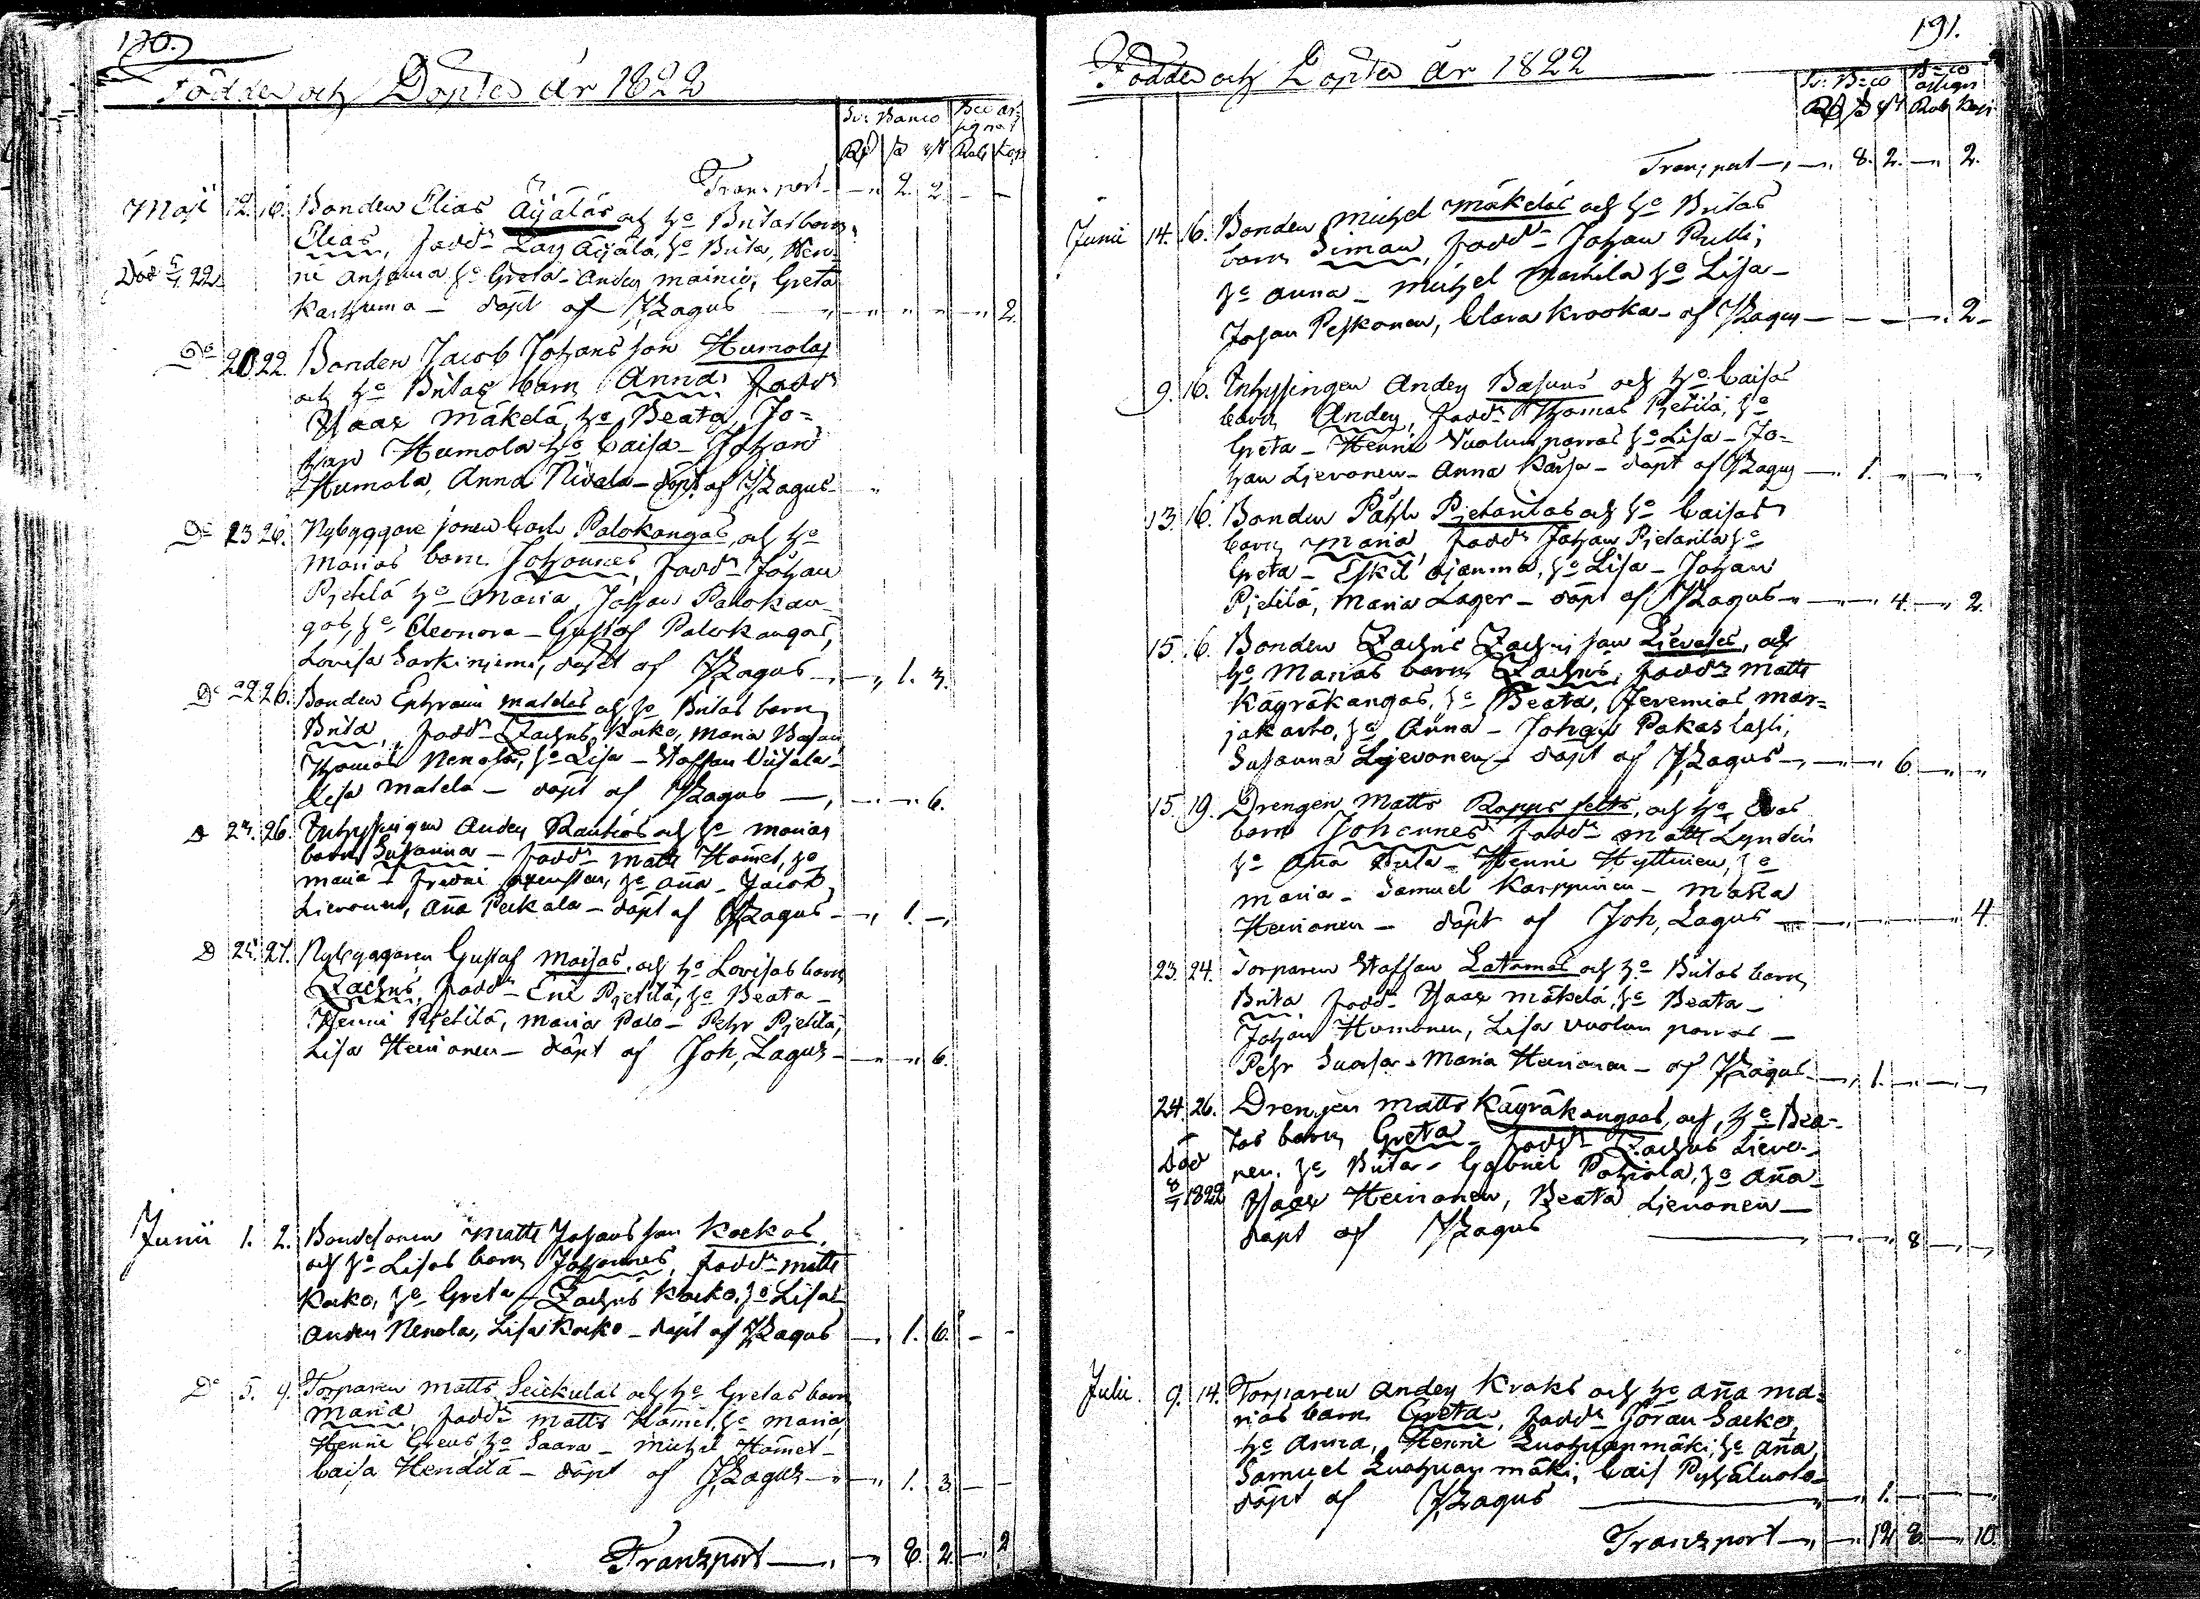 190.
Födde och Döpte År 1822
Sv: Banco Bco as:
signat
Rd ß rst Rub Kop
Transport — „ 2. 2. — —
Maji 12. 16. Bonden Elias Äijäläs och h:o Britas barn
Elias, fadd:r Lars Äijälä, h:o Brita, Hen-
Död 22 ne Ansama h:o Greta - Anders Mainio, Greta
Karhuma — döpt af J Lagus — „ „ „ — 2.
D:o 20 22. Bonden Jacob Johansson Humolas
och h:o Britas barn Anna, fadd:r
Isaac Mäkelä, h:o Beata, Jo-
han Humola h:o Caisa - Johan
Humola, Anna Nivala - döpt af J Lagus - „
D:o 23 26. Nybyggare sonen Carls Palokangas, och h:o
Marias barn Johannes, fadd:r Johan
Pietilä h:o Maria, Johan Palokan-
gas, h:o Eleonora - Gustaf Palokangas,
Lovisa Sarkiniemi, döpt af J Lagus — „ 1. 3.
D:o 22 26. Bonden Ephraim Matelas och h:o Britas barn
Brita, fadd:r Zachris Kocko, Maria
Thomas Nenola, h:o Lisa - Staffan
Lisa Matela - döpt af J Lagus — „ — 6.
D 24. 26. Inhysingen Anders Rautios och h:o Marias
barn Susanna - fadd:r Matts Hamet, h:o
Maria - h:o Aña - Jacob
Lievonen, Aña Peckala - döpt af J Lagus — „ 1. —
D 25. 27. Nybyggaren Gustaf Maijas, och h:o Lovisas barn
Zachris, fadd:r Eric Pietilä, h:o Beata -
Henric Pietilä, Maria Palo - Pehr Pietilä,
Lisa Heinonen - döpt af Joh, Lagus — „ — 6.
Junii 1. 2. Bondesonen Matts Johansson Kockos,
och h:o Lisas barn Johannes, fadd:r Matts
Kocko, h:o Greta - Zachris Kocko, h:o Lisa
Anders Nenola, Lisa Kocko - döpt af J Lagus — 1. 6. — —
D:o 5. 9. Torparen Matts Leickulas och h:o Gretas barn
Maria, fadd:r Matts Hamet, h:o Maria,
Henric Greus h:o Saara - Michel Hamet -
Caisa Hendilä - döpt af J Lagus — „ 1. 3. — —
Transport — „ 8. 2. — 2
191.
Födde och Döpte År 1822
Sv: B:co B:co
assign
Rd ß rst Rub Kop
Transport — „ 8. 2. — 2.
Junii 14. 16. Bonden Michel Mäkeläs och h:o Britas
barn Simon, fadd:r Johan
h:o Anna - Michel Marttila h:o Lisa -
Johan Peskonen, Clara Krooka - af J Lagus — — — — 2 -
9. 16. Inhysingen Anders och h:o Caisas
barn Anders, fadd:r Thomas Pietilä, h:o
Greta - Henric Vuolun parras h:o Lisa - Jo-
han Lievonen - Anna Karja - döpt af J Lagus — 1. „ — „
13. 16. Bonden Påhl Pietarilas och h:o Caisas
barn Maria, fadd:r Johan Pietarila h:o
Greta - Eskil Ojanma, h:o Lisa - Johan
Pietilä, Maria Lager - döpt af J Lagus — „ — 4. — 2.
15. 16. Bonden Zachris Zachrisson Lievoses, och
h:o Marias barn Zachris, fadd:r Matts
Kägräkangas, h:o Beata, Jeremias Mar-
jakarbo, h:o Anna - Johan Pakaslahti,
Susanna Lievonen - döpt af J Lagus — „ — 6. — „
15. 19. Drengen Matts, och h:o Evas
barn Johannes fadd:r Matts Lyndin
h:o Aña Brita - Henric Hyttinen, h:o
Maria - Samuel Karppinen - Maria
Heinonen - döpt af Joh, Lagus — — — 4.
23. 24. Torparen Staffan Latomas och h:o Britas barn
Brita, fadd:r Isaac Mäkelä, h:o Beata -
Johan Humonen, Lisa Vuolun parras -
Pehr - Maria Heinonen - af J Lagus — „ 1. — — „
24. 26. Drengen Matts Kägräkangas, och h:o Bea-
tas barn Greta - fadd:r Zachris Lievo-
Död nen. h:o Brita - Gabriel Pohjola, h:o Aña -
1822 Isaac Heinonen, Beata Lievonen —
döpt af J Lagus — — 8. — „
Julii 9. 14. Torparen Anders Kroks och h:o Aña Ma-
rias barn Greta, fadd:r Jöran Sacko,
h:o Anna, Henric Luohuanmäki, h:o Aña,
Samuel Luohuanmäki, Cais Pyhäluoto -
döpt af J Lagus — „ 1. — —
Transport — „ 12 8. — 10.